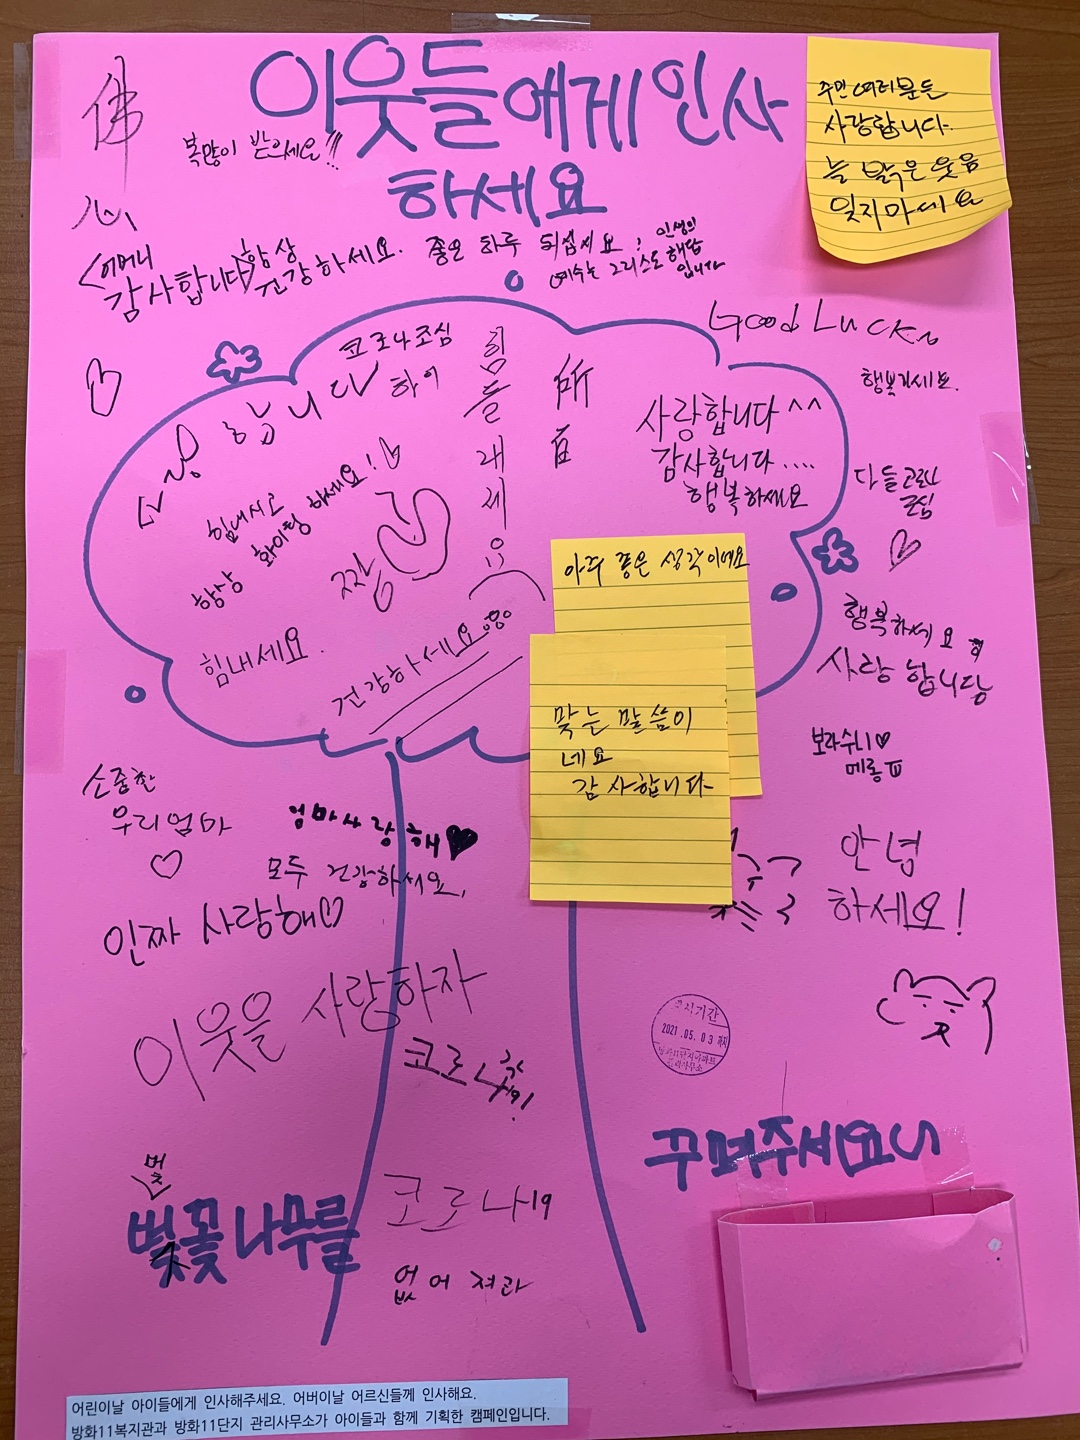 이웃들에게 인사
하세요
佛
心
복많이 받으세요!!!
주민 여러분들
사랑합니다.
늘 밝은 웃음
잊지마세요
<어머니
감사합니다>
항상
건강하세요. 좋은 하루 되십세요!
인생의
해답
예수는 그리스도
입니다
Good Luck
행복하세요.
코로나조심
하이
사랑합니다
힘들내세요
사랑합니다 ^^
감사합니다....
행복하세요
다들
힘내시고
항상 화이팅 하세요!
짱
힘내세요.
건강하세요
아주 좋은 생각이에요
맞는 말씀이
네요
감사합니다
행복하세요
사랑합니당
보라돌이♡
메롱
소중한
우리엄마
♡
엄마사랑해♥
모두 건강하세요,
인짜 사랑해♡
안녕
하세요!
이웃을 사랑하자
코로나
2021.05.03 까지
꾸며주세요
벚
벚꽃나무를
코로나19
없어져라
어린이날 아이들에게 인사해주세요. 어버이날 어르신들께 인사해요.
방화11복지관과 방화11단지 관리사무소가 아이들과 함께 기획한 캠페인입니다.